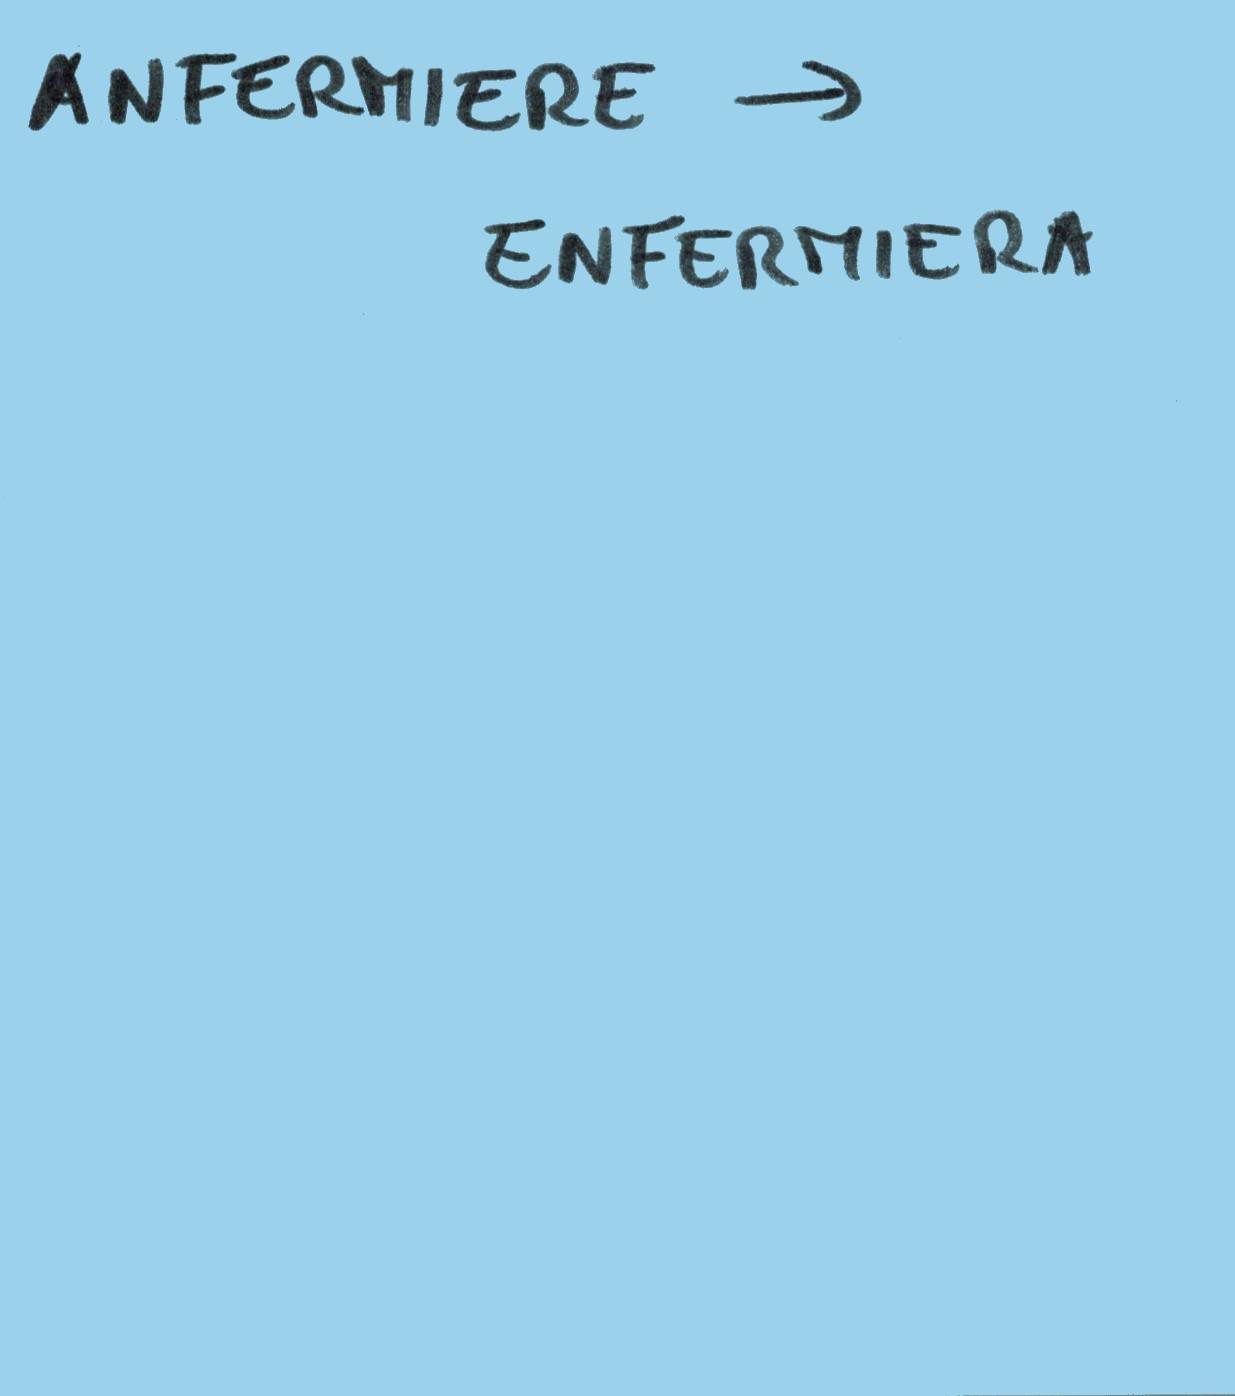 ANFERMIERE →
ENFERMIERA